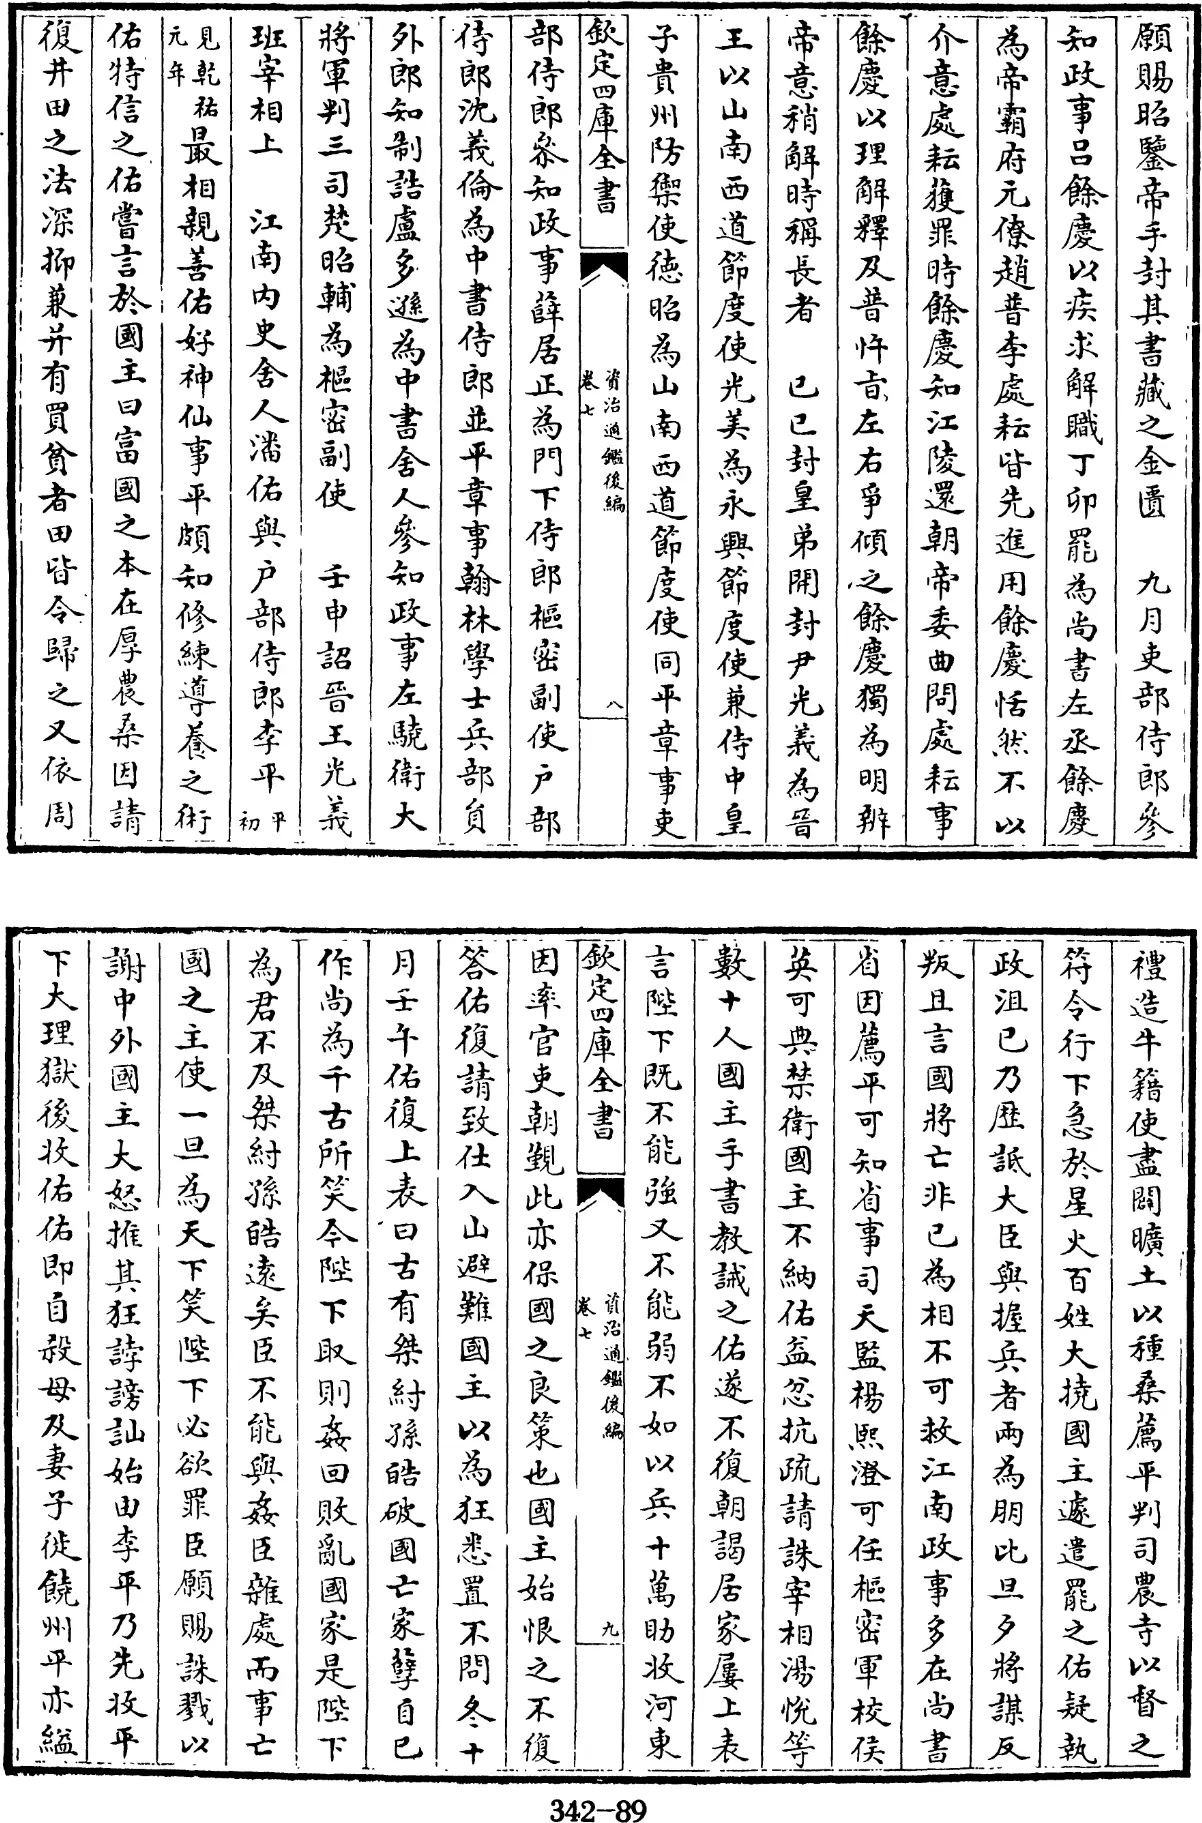 願賜昭鑒帝手封其書藏之金匱　九月吏部侍郎參
知政事呂餘慶以疾求解職丁卯罷為尚書左丞餘慶
為帝霸府元僚趙普李處耘皆先進用餘慶恬然不以
介意處耘獲罪時餘慶知江陵還朝帝委曲問處耘事
餘慶以理解釋及普忤旨左右爭傾之餘慶獨為明辨
帝意稍解時稱長者　己巳封皇弟開封尹光義為晉
王以山南西道節度使光美為永興節度使兼侍中皇
子貴州防禦使德昭為山南西道節度使同平章事吏
欽定四庫全書
資治通鑑後編
卷七
八
部侍郎參知政事薛居正為門下侍郎樞密副使戶部
侍郎沈義倫為中書侍郎並平章事翰林學士兵部員
外郎知制誥盧多遜為中書舍人參知政事左驍衛大
將軍判三司楚昭輔為樞密副使　壬申詔晉王光義
班宰相上　江南內史舍人潘佑與戶部侍郎李平平初
見乾祐元年最相親善佑好神仙事平頗知修練導養之術
佑特信之佑嘗言於國主曰富國之本在厚農桑因請
復井田之法深抑兼并有買貧者田皆令歸之又依周
禮造牛籍使盡闢曠土以種桑薦平判司農寺以督之
符令行下急於星火百姓大撓國主遽遣罷之佑疑執
政沮已乃歷詆大臣與握兵者兩為朋比旦夕將謀反
叛且言國將亡非已為相不可救江南政事多在尚書
省因薦平可知省事司天監楊熙澄可任樞密軍校侯
英可典禁衛國主不納佑益忿抗疏請誅宰相湯悅等
數十人國主手書教誡之佑遂不復朝謁居家屢上表
言陛下既不能強又不能弱不如以兵十萬助收河東
欽定四庫全書
資治通鑑後編
卷七
九
因率官吏朝覲此亦保國之良策也國主始恨之不復
答佑復請致仕入山避難國主以為狂悉置不問冬十
月壬午佑復上表曰古有桀紂孫皓破國亡家孽自已
作尚為千古所笑今陛下取則姦回敗亂國家是陛下
為君不及桀紂孫皓遠矣臣不能與姦臣雜處而事亡
國之主使一旦為天下笑陛下必欲罪臣願賜誅戮以
謝中外國主大怒推其狂誖謗訕始由李平乃先收平
下大理獄後收佑佑即自殺母及妻子徙饒州平亦縊
342-89